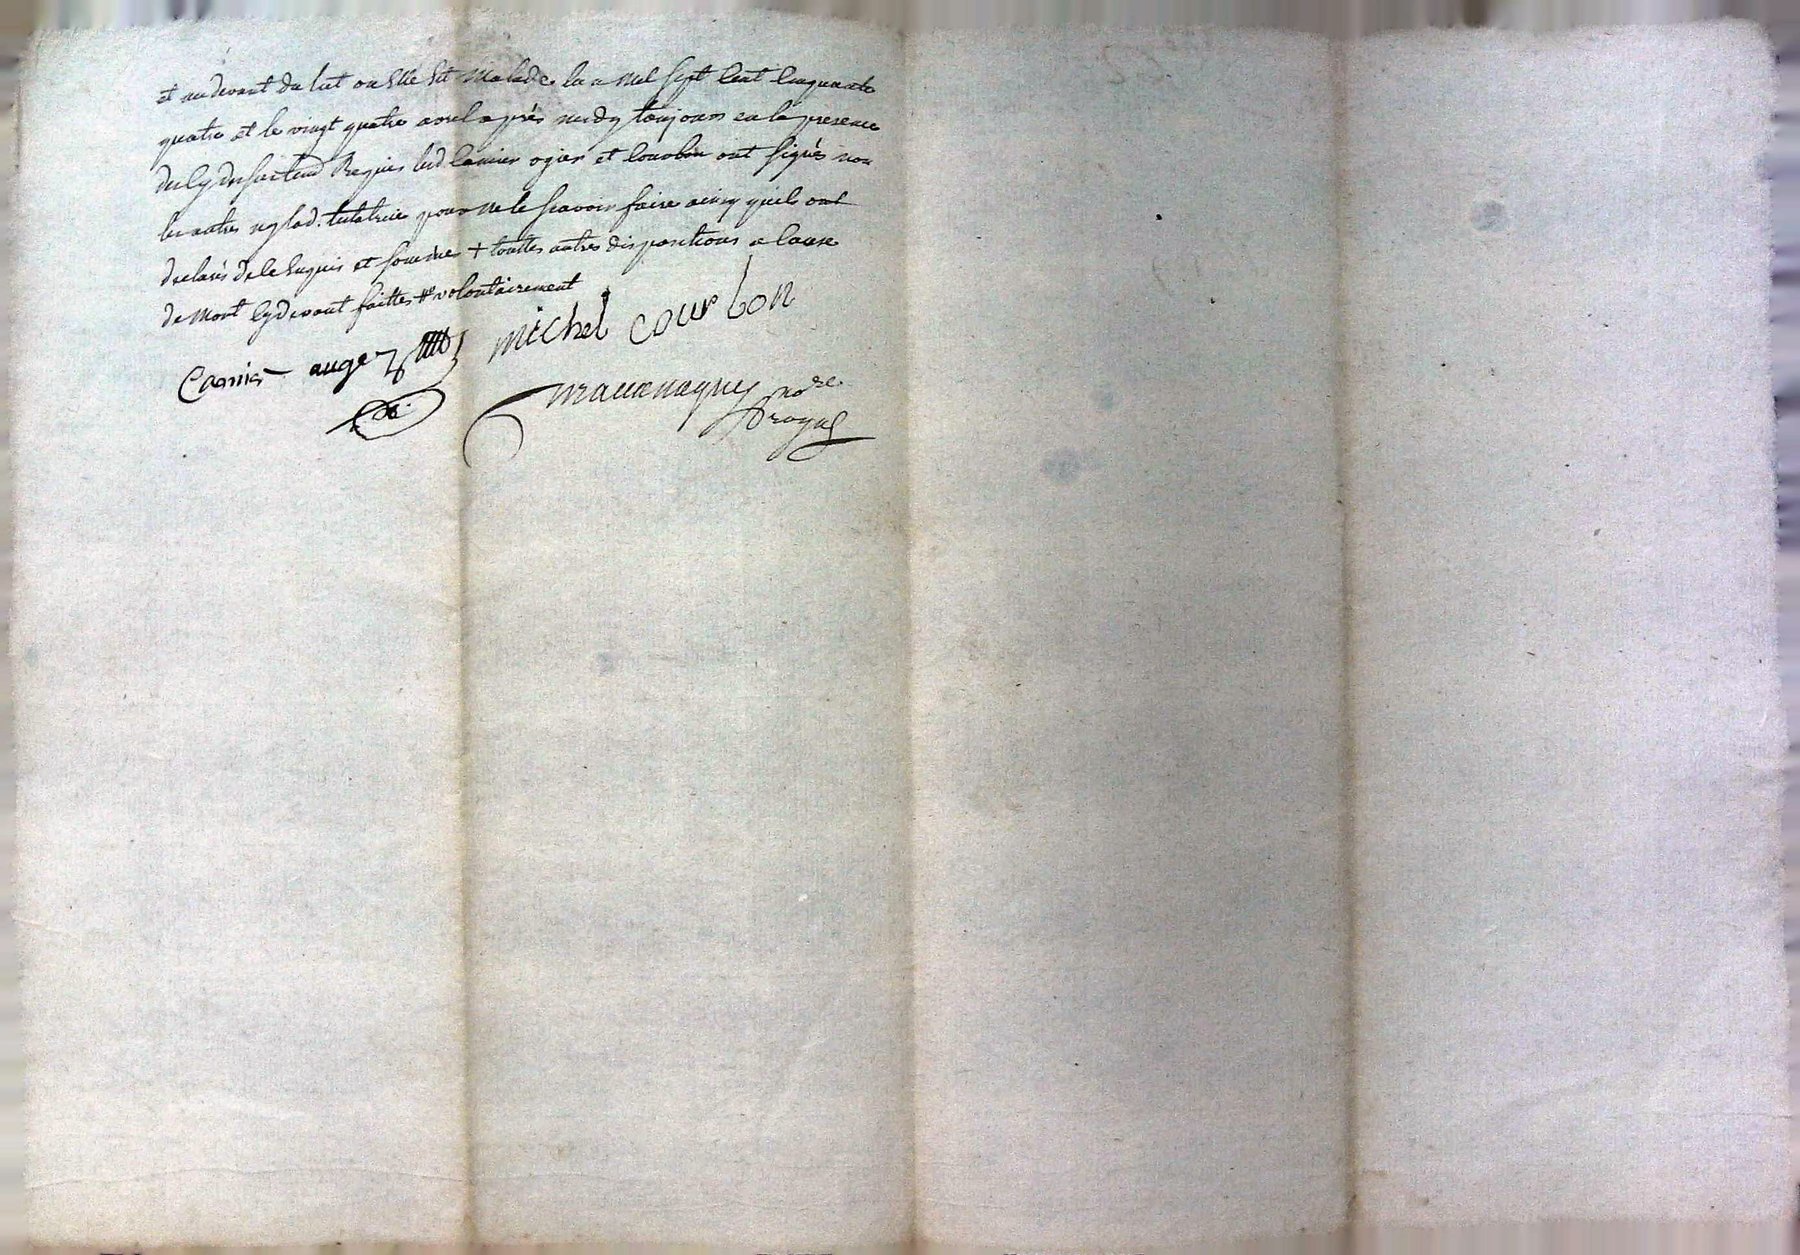 et au devant du lit ou Elle Est Malade lan Mil sept Cent Cinquante
quatre et le vingt quatre avril après midy toujours en la presence
des cy dessus temd Requis led Camier ogier et Courbon ont signés non
les autres ny lad. testatrice pour ne le scavoir faire ainsy quils ont
declarés de ce Enquis et sommés + touttes autres dispositions a Cause
de Mort cy devant faittes # volontairement
Camier auger michel courbon
no.re
royal